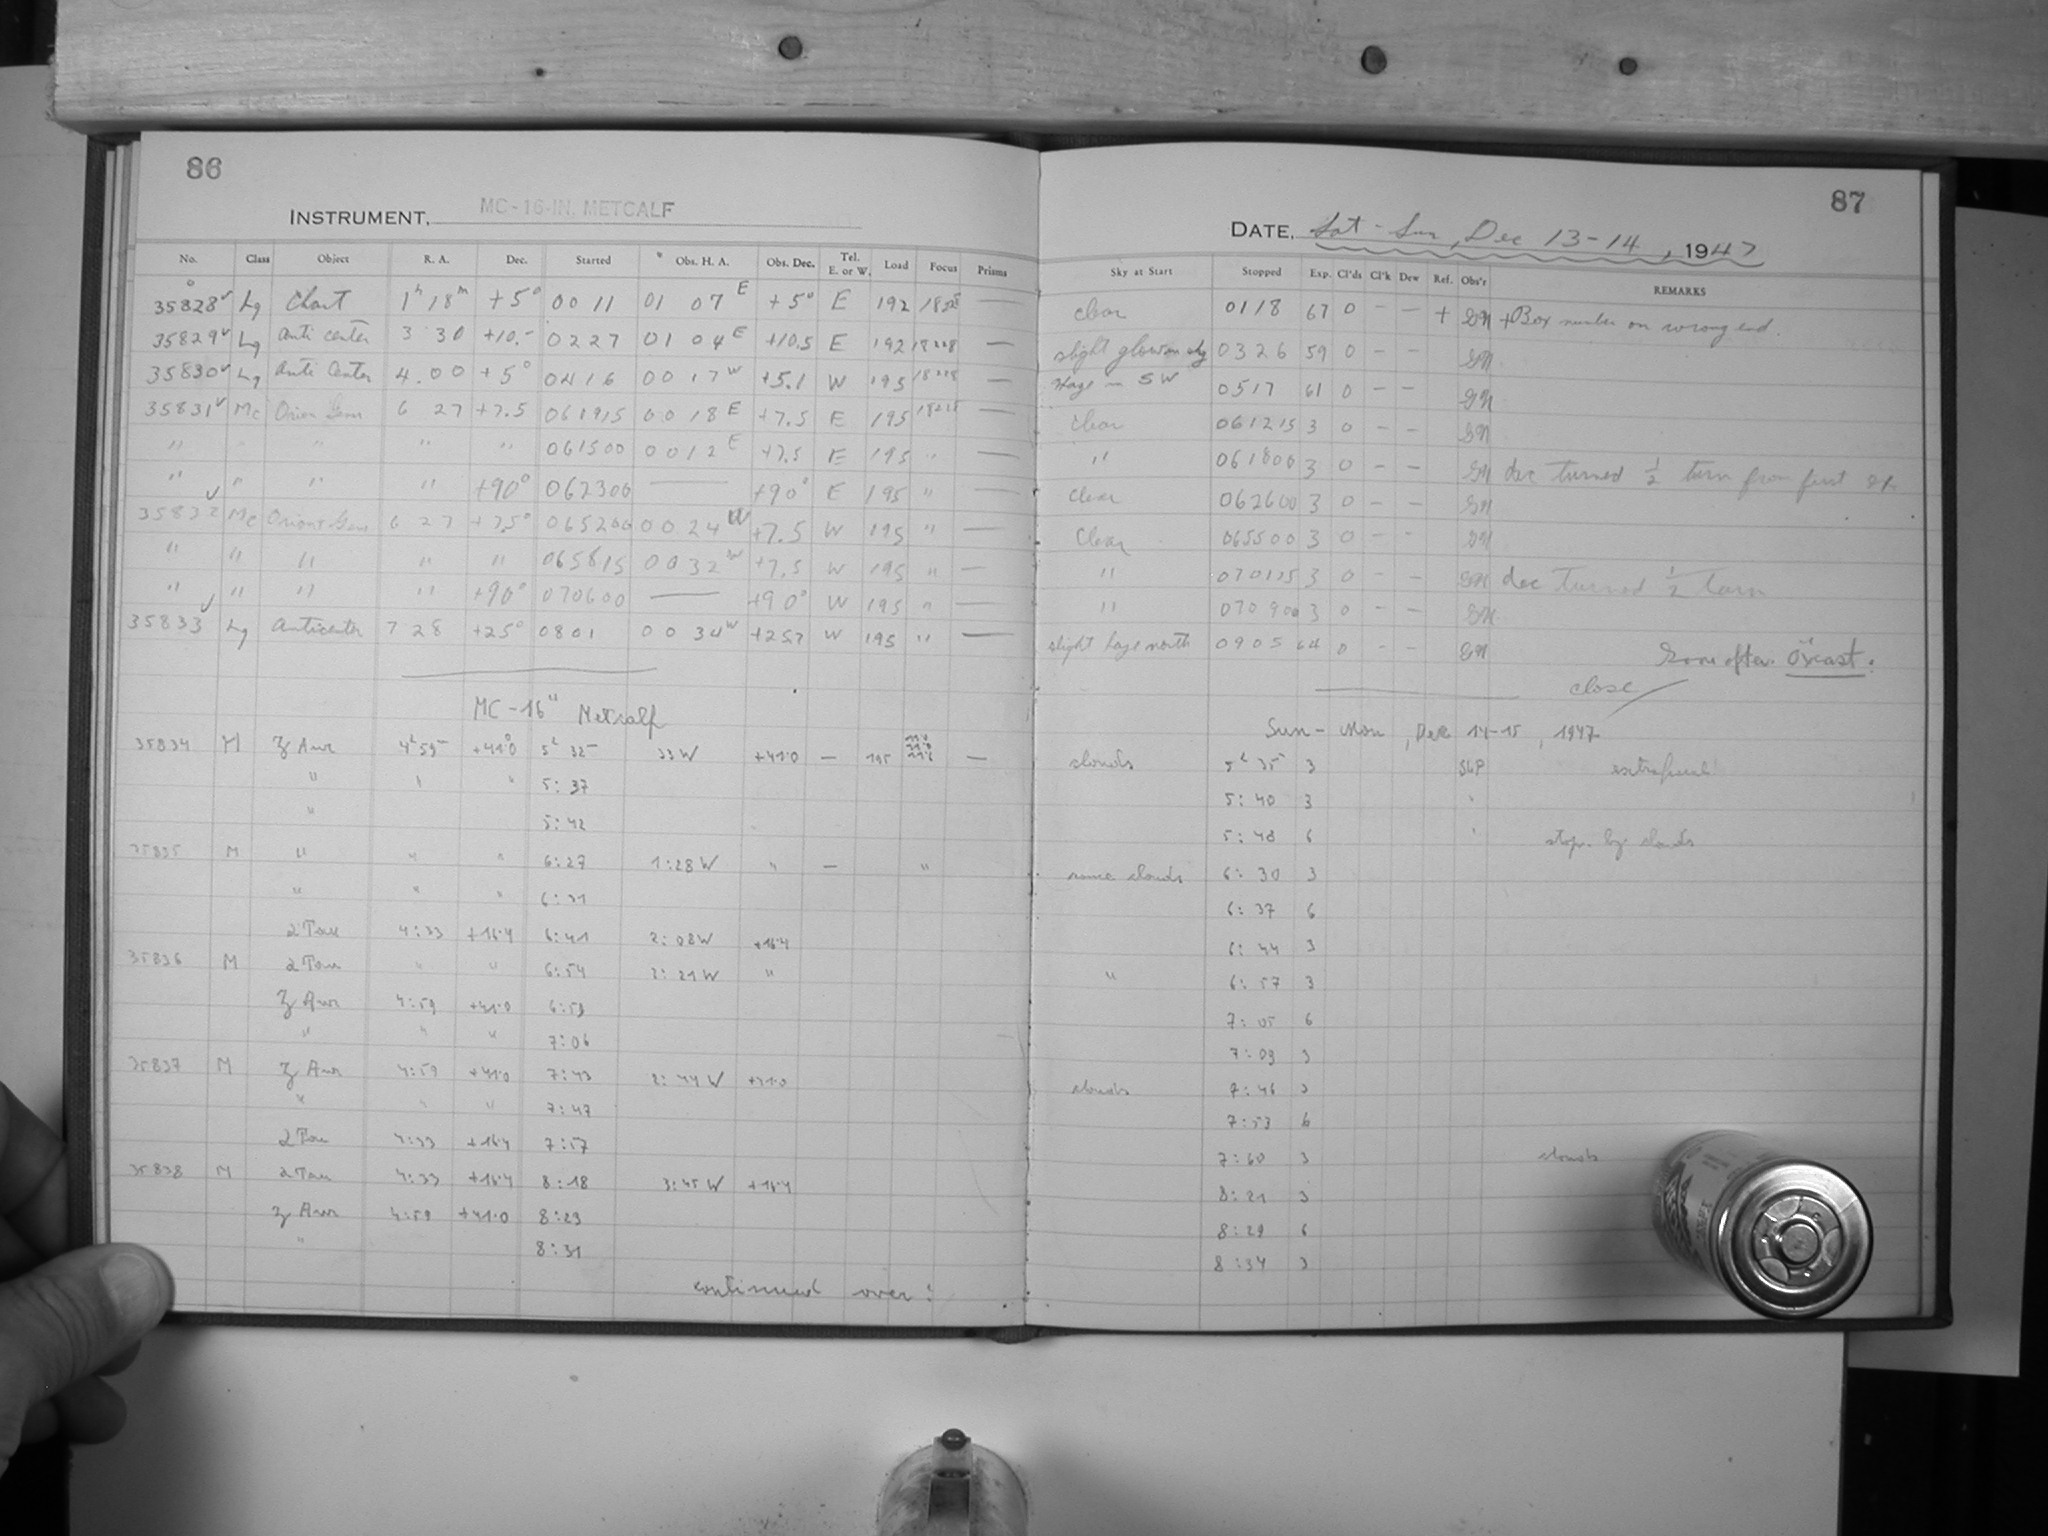 86
INSTRUMENT, MC-16-IN. METCALF
No. Class Object R. A. Dec. Started Obs. H. A. Obs. Dec. Tel. E. or W. Load Focus Prisms
35828 Lg Chart 1h 18m +5° 0011 01 07 E +5° E 192
35829 Lg Anti center 3 30 +10.- 0227 01 04 E +10.5 E 192 —
35830 Lg Anti Center 4.00 +5° 0416 00 17 W +5.1 W 195 —
35831 Mc 6 27 +7.5 0018 E +7.5 E 195 —
" " " " 061500 0012 E +7.5 E 195 " —
" " " " +90° 062300 — +90° E 195 " —
35832 Mc 6 27 +7.5° 065200 00 24 W +7.5 W 195 " —
" " " " " 065815 00 32 W +7.5 W 195 " —
" " " " +90° 070600 — +90° W 195 " —
35833 Lg Anticenter 7 28 +25° 0801 00 34 W +25? W 195 " —
MC-16" Metcalf
35834 M ζ Aur +41.0 33 W +41.0 — 195 —
" 5:37
" 5:42
35835 M " " " 6:27 1:28 W " — "
" " " 6:31
α Tau 4:33 +16.4 6:41 2:08 W +16.4
35836 M α Tau " " 6:54 2:21 W "
ζ Aur 4:59 +41.0 6:59
" " " 7:06
35837 M ζ Aur 4:59 +41.0 7:43 2:44 W +41.0
" " " 7:47
α Tau 4:33 +16.4 7:57
35838 M α Tau 4:33 +16.4 8:18 3:45 W +16.4
ζ Aur 4:59 +41.0 8:23
" 8:31
continued over:
87
DATE, Sat - Sun, Dec 13-14, 1947
Sky at Start Stopped Exp. Cl'ds Cl'k Dew Ref. Obs'r REMARKS
clear 0118 67 0 - - + GN +Box number on wrong end.
slight glow 0326 59 0 - - GN
Haze in SW 0517 61 0 - - GN
clear 061215 3 0 - - GN
" 061800 3 0 - - GN dec turned 1/2 turn from first
clear 062600 3 0 - - GN
Clear 065500 3 0 - - GN
" 070115 3 0 - - GN dec turned 1/2 turn
" 070900 3 0 - - GN
slight haze north 0905 64 0 - - GN Soon after O'cast.
close
Sun - Mon, Dec 14-15, 1947
clouds 5h 35m 3 SGP
5:40 3 "
5:48 6 " stop. by clouds
some clouds 6:30 3
6:37 6
6:44 3
" 6:57 3
7:05 6
7:09 3
clouds 7:46 3
7:53 6
7:60 3 clouds
8:21 3
8:29 6
8:34 3